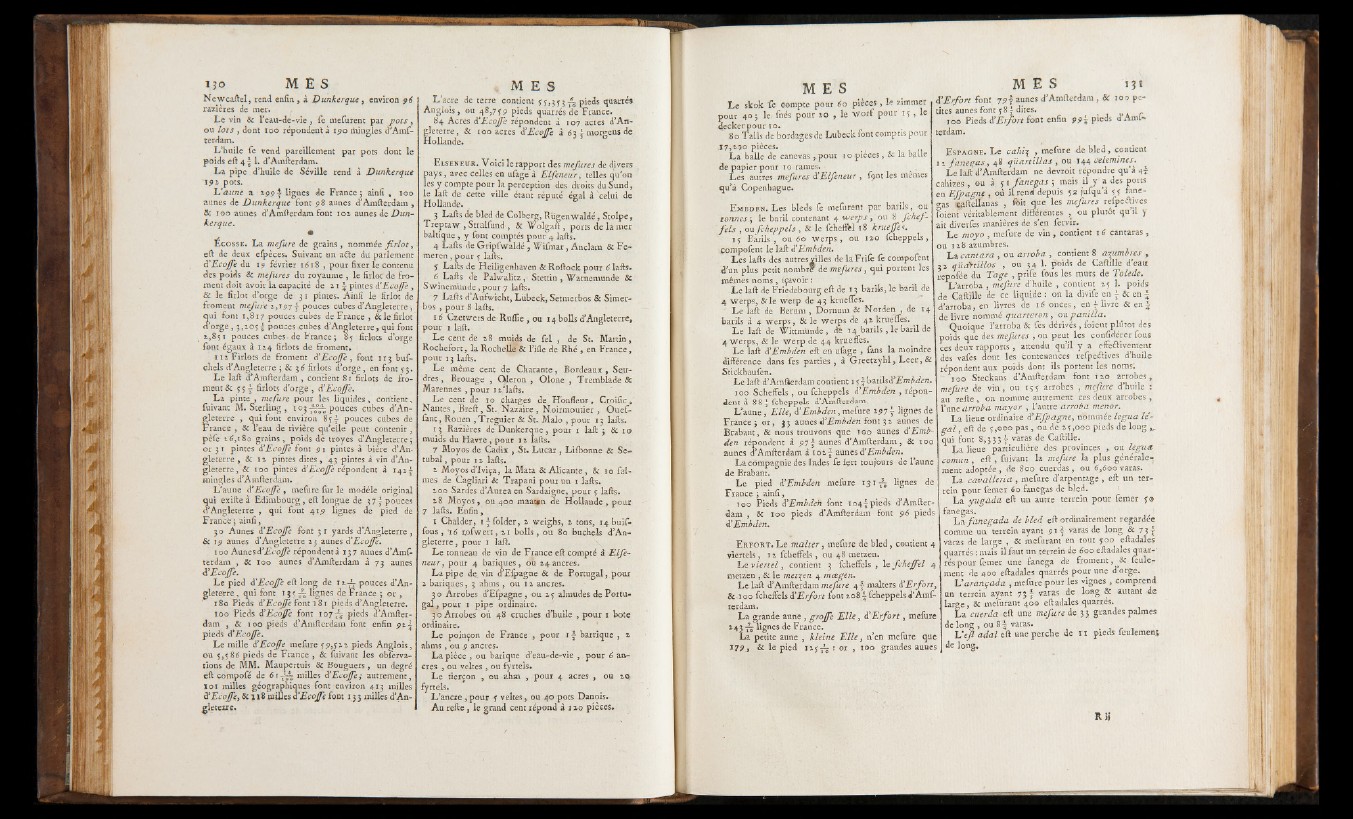 130 MES
Newcastel, rend enfin, à Dunkerque, environ 96
razières de mer.
Le vin & l'eau-de-vie, se mesurent par pots,
ou lots, dont 100 répondent à 190 mingles d'Ams-
terdam.
L'huile se vend pareillement par pots dont le
poids est 4 3/4 l. d'Amsterdam.
La pipe d'huile de Séville rend à Dunkerque
192 pots.
L'aune a lignes de France; ainsi, 100
aunes de Dunkerque font 98 aunes d'Amsterdam,
& 100 aunes d'Amsterdam font 102 aunes de Dun-
kerque.
ÉCOSSE. La mesure de grains, nommée firlot,
est de deux espèces. Suivant un acte du parlement
d'Ecosse du 19 février 1618, pour fixer le contenu
des poids & mesures du royaume, le firlot de fro-
ment doit avoir la capacité de pintes d'Ecosse,
& le firlot d'orge de 31 pintes. Ainsi le firlot de
froment mesure pouces cubes d'Angleterre,
qui font 1,817 pouces cubes de France, & le firlot
d'orge, pouces cubes d'Angleterre, qui font
2,851 pouces cubes de France; 85 firlots d'orge
sont égaux à 124 firlots de froment.
112 Firlots de froment d'Ecosse, font 113 bus-
chels d'Angleterre; & 36 firlots d'orge, en font 53.
Le last d'Amsterdam, contient 81 firlots de fro-
ment & firlots d'orge, d'Ecosse.
La pinte, mesure pour les liquides, contient,
suivant M. Sterling, pouces cubes d'An-
gleterre, qui font environ pouces cubes de
France, & l'eau de rivière qu'elle peut contenir,
pèse 26,180 grains, poids de troyes d'Angleterre;
or 31 pintes d'Ecosse font 91 pintes à bière d'An-
gleterre, & 12 pintes dites, 43 pintes à vin d'An-
gleterre, & 100 pintes d'Ecosse répondent à
mingles d'Amsterdam.
L'aune d'Ecosse, mesure sur le modèle original
qui existe à Edimbourg, est longue de pouces
d'Angleterre, qui font 419 lignes de pied de
France; ainsi,
30 Aunes d'Ecosse font 31 yards d'Angleterre,
& 19 aunes d'Angleterre 25 aunes d'Ecosse.
100 Aunes d'Ecosse répondent à 137 aunes d'Ams-
terdam, & 100 aunes d'Amsterdam à 73 aunes
d'Ecosse.
Le pied d'Ecosse est long de pouces d'An-
gleterre, qui font lignes de France; or,
180 Pieds d'Ecosse font 181 pieds d'Angleterre.
100 Pieds d'Ecosse font pieds d'Amster-
dam, & 100 pieds d'Amsterdam font enfin
pieds d'Ecosse.
Le mille d'Ecosse mesure 59,522 pieds Anglois,
ou 5,586 pieds de France, & suivant les observa-
tions de MM. Maupertuis & Bouguers, un degré
est composé de milles d'Ecosse; autrement,
101 milles géographiques font environ 413 milles
d'Ecosse, & 118 milles d'Ecosse font 133 milles d'An-
gleterre.
MES
L'acre de terre contient pieds quarrés
Anglois, ou 48,759 pieds quarrés de France.
84 Acres d'Ecosse répondent à 107 acres d'An-
gleterre, & 100 acres d'Ecosse à morgens de
Hollande.
ELSENEUR. Voici le rapport des mesures de divers
pays, avec celles en usage à Elseneur, telles qu'on
les y compte pour la perception des droits du Sund,
le last de cette ville étant réputé égal à celui de
Hollande.
3 Lasts de bled de Colberg, Rugenwaldé, Stolpe,
Treptaw, Stralsund, & Wolgast, ports de la mer
baltique, y sont comptés pour 4 lasts.
4 Lasts de Gripswaldé, Wismar, Anclam & Fe-
meren, pour 5 lasts.
5 Lasts de Heiligenhaven & Rostock pour 6 lasts.
6 Lasts de Palwalitz, Stettin, Warnemunde &
Swinemunde, pour 7 lasts.
7 Lasts d'Auswicht, Lubeck, Setmerbos & Simer-
bos, pour 8 lasts.
16 Czetwers de Russie, ou 14 bolls d'Angleterre,
pour 1 last.
Le cent de 28 muids de sel, de St. Martin,
Rochefort, la Rochelle & l'isle de Rhé, en France,
pour 13 lasts.
Le même cent de Charante, Bordeaux, Seu-
dres, Brouage, Oleron, Olone, Tremblade &
Marennes, pour 12 lasts.
Le cent de 10 charges de Honfleur, Croisic,
Nantes, Brest, St. Nazaire, Noirmoutier, Ouess-
ant, Rouen, Treguier & St. Malo, pour 13 lasts.
13 Razières de Dunkerque, pour 1 last; & 10
muids du Havre, pour 12 lasts.
7 Moyos de Cadix, St. Lucar, Lisbonne & Se-
tubal, pour 12 lasts.
2 Moyos d'Iviça, la Mata & Alicante, & 10 sel-
mes de Cagliari & Trapani pour un 1 lasts.
200 Sardes d'Aurea en Sardaigne, pour 5 lasts.
28 Moyos, ou 400 maaten de Hollande, pour
7 lasts. Enfin,
1 Chalder, folder, 2 weighs, 2 tons, 14 buis-
sons, 16 tofwert, 21 bolls, ou 80 buchels d'An-
gleterre, pour 1 last.
Le tonneau de vin de France est compté à Else-
neur, pour 4 bariques, ou 24 ancres.
La pipe de vin d'Espagne & de Portugal, pour
2 bariques, 3 ahms, ou 12 ancres.
30 Arrobes d'Espagne, ou 25 almudes de Portu-
gal, pour 1 pipe ordinaire.
30 Arrobes ou 48 cruches d'huile, pour 1 bote
ordinaire.
Le poinçon de France, pour barrique, 2
ahms, ou 9 ancres.
La pièce, ou barique d'eau-de-vie, pour 6 an-
cres, ou veltes, ou fyrtels.
Le tierçon, ou ahm, pour 4 acres, ou 20
fyrtels.
L'ancre, pour 5 veltes, ou 40 pots Danois.
Au reste, le grand cent répond à 120 pièces.
MES
Le skok se compte pour 60 pièces, le zimmer
pour 40; le snés pour 20, le worf pour 15, le
decker pour 10.
80 Talls de bordages de Lubeck sont compris pour
17,220 pièces.
La balle de canevas, pour 10 pièces, & la balle
de papier pour 10 rames.
Les autres mesures d'Elseneur, sont les mêmes
qu'à Copenhague.
EMBDEN. Les bleds se mesurent par barils, ou
tonnes; le baril contenant 4 werps, ou 8 schef-
fels, ou scheppels, & le scheffel 18 kruesses.
15 Barils, ou 60 werps, ou 120 scheppels,
composent le last d'Embden.
Les lasts des autres villes de la Frise se composent
d'un plus petit nombre de mesures, qui portent les
mêmes noms, sçavoir:
Le last de Friedebourg est de 13 barils, le baril de
4 werps, & le werp de 43 kruesses.
Le last de Berum, Dornum & Norden, de 14
barils à 4 werps, & le werps de 42 kruesses.
Le last de Wittmunde, de 14 barils, le baril de
4 werps, & le werp de 44 kruesses.
Le last d'Embden est en usage, sans la moindre
différence dans ses parties, à Greetzyhl, Leer, &
Stickhausen.
Le last d'Amsterdam contient barils d'Embden.
100 Scheffels, ou scheppels d'Embden, répon-
dent à scheppels d'Amsterdam.
L'aune, Elle, d'Embden, mesure lignes de
France; or, 33 aunes d'Embden font 32 aunes de
Brabant, & nous trouvons que 100 aunes d'Emb-
den répondent à aunes d'Amsterdam, & 100
aunes d'Amsterdam à aunes d'Embden.
La compagnie des Indes se sert toujours de l'aune
de Brabant.
Le pied d'Embden mesure lignes de
France; ainsi,
100 Pieds d'Embden font pieds d'Amster-
dam, & 100 pieds d'Amsterdam font 96 pieds
d'Embden.
ERFORT. Le malter, mesure de bled, contient 4
viertels, 12 scheffels, ou 48 metzen.
Le viertel, contient 3 scheffels, le scheffel 4
metzen, & le metzen 4 mæzgen.
Le last d'Amsterdam mesure malters d'Erfort,
& 100 scheffels d'Erfort font scheppels d'Ams-
terdam.
La grande aune, grosse Elle, d'Erfort, mesure
lignes de France.
La petite aune, kleine Elle, n'en mesure que
179, & le pied : or, 100 grandes aunes
MES 131
d'Erfort font aunes d'Amsterdam, & 100 pe-
tites aunes font dites.
100 Pieds d'Erfort font enfin pieds d'Ams-
terdam.
ESPAGNE. Le cahiz, mesure de bled, contient
12 fanegas, 48 quartillas, ou 144 celemines.
Le last d'Amsterdam ne devroit répondre qu'à
cahizes, ou à 51 fanegas; mais il y a des ports
en Espagne, où il rend depuis 52 jusqu'à 55 fane-
gas castellanas, soit que les mesures respectives
soient véritablement différentes, ou plutôt qu'il y
ait diverses manières de s'en servir.
Le moyo, mesure de vin, contient 16 cantaras,
ou 128 azumbres.
La cantara, ou arroba, contient 8 azumbres,
32 quartillos, ou 34 l. poids de Castille d'eau
reposée du Tage, prise sous les murs de Tolede.
L'arroba, mesure d'huile, contient 25 l. poids
de Castille de ce liquide: on la divise en & en
d'arroba, en livres de 16 onces, en livre & en
de livre nommé quarteron, ou panilla.
Quoique l'arroba & ses dérivés, soient plûtot des
poids que des mesures, on peut les considérer sous
ces deux rapports, attendu qu'il y a effectivement
des vases dont les contenances respectives d'huile
répondent aux poids dont ils portent les noms.
100 Steckans d'Amsterdam font 120 arrobes,
mesure de vin, ou 155 arrobes, mesure d'huile:
au reste, on nomme autrement ces deux arrobes,
l'une arroba mayor, l'autre arroba menor.
La lieue ordinaire d'Espagne, nommée legua lé-
gal, est de 5,000 pas, ou de 25,000 pieds de long,
qui font varas de Castille.
La lieue particulière des provinces, ou legua
comun, est, suivant la mesure la plus générale-
ment adoptée, de 800 cuerdas, ou 6,600 varas.
La cavalleria, mesure d'arpentage, est un ter-
rein pour semer 60 fanegas de bled.
La yugada est un autre terrein pour semer 50
fanegas.
La fanegada de bled est ordinairement regardée
comme un terrein ayant varas de long &
varas de large, & mesurant en tout 500 estadales
quarrés: mais il faut un terrein de 600 estadales quar-
rés pour semer une fanega de froment, & seule-
ment de 400 estadales quarrés pour une d'orge.
L'arançada, mesure pour les vignes, comprend
un terrein ayant varas de long & autant de
large, & mesurant 400 estadales quarrés.
La cuerda est une mesure de 33 grandes palmes
de long, ou varas.
L'estadal est une perche de 11 pieds seulement
de long.
R ij